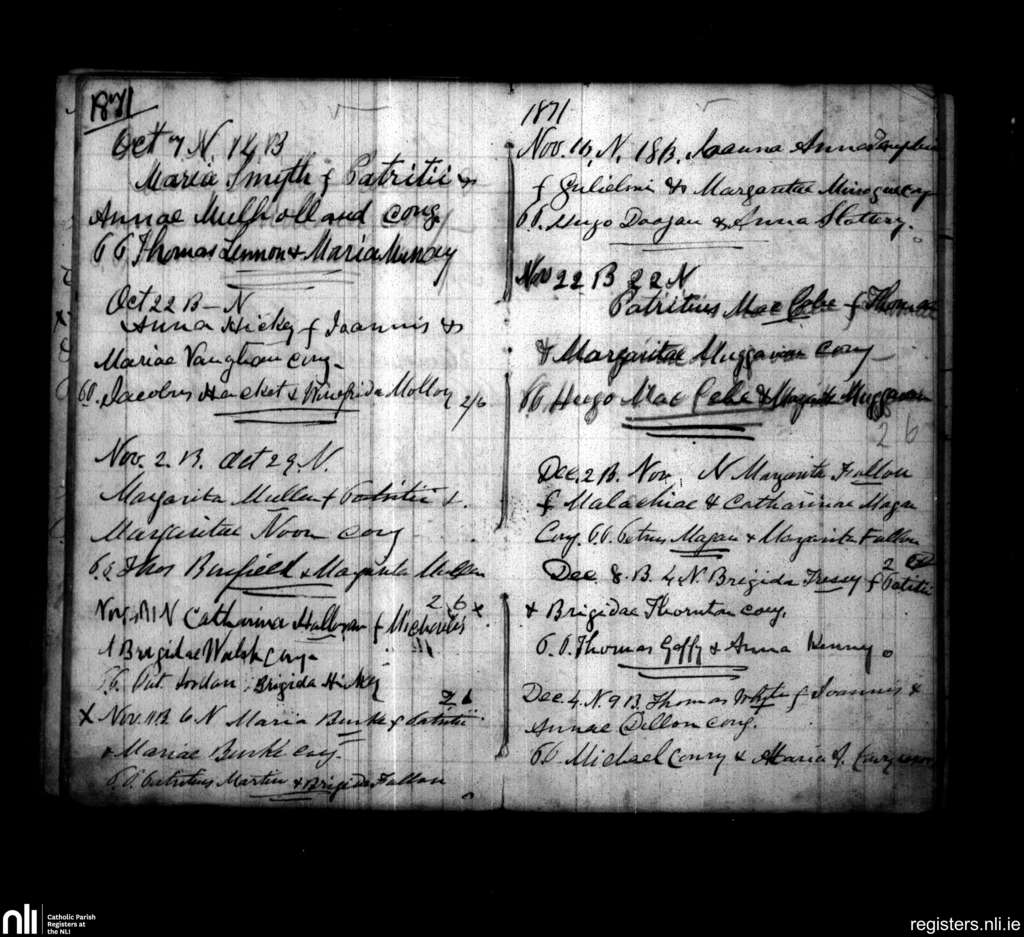 1871
Oct 7 N. 14 B
Maria Smyth f Patritii &
Annae Mulholland conj
PP Thomas Lennon & Maria
Oct 22 B - N
Anna Hickey f Joannis &
Mariae Vaughan conj.
PP. Jacobus Hacket & Winefrida Molloy 2/6
Nov. 2. B. Oct 29 N.
Margarita Mullen f Patritii &
Margaritae Noon conj
P.P. Thos & Margarita Mullen
2 6
Nov. N Catharina Halloran f Michaelis
& Brigidae Walsh conj.
PP. Pat. Jordan, Brigida Hickey
2 6
X Nov. 11 B 6 N Maria Burke f Patritii
& Mariae Burke conj.
P.P. Patritius Martin & Brigida Fallon
1871
Nov. 16, N. 18 B. Joanna Anna
f Gulielmi & Margaritae Minogue conj
PP. Hugo & Anna Slattery.
Nov 22 B 22 N
Patritius Mac Cabe f Thomae
& Margaritae Muggavan conj
PP Hugo Mac Cabe & Margarita Muggavan
2 6
Dec. 2 B. Nov, N Margarita Fallon
f Malachiae & Catharinae Magan
Conj. P.P. Petrus Magan & Margarita Fallon
2
Dec. 8. B. 4 N. Brigida f Patritii
& Brigidae Thornton conj.
P.P. Thomas Goffy & Anna Kenny
Dec. 4. N. 9 B. Thomas Whyte f Joannis &
Annae Dillon conj.
PP Michael Conry & Maria
nli
Catholic Parish
Registers at
the NLI
registers.nli.ie